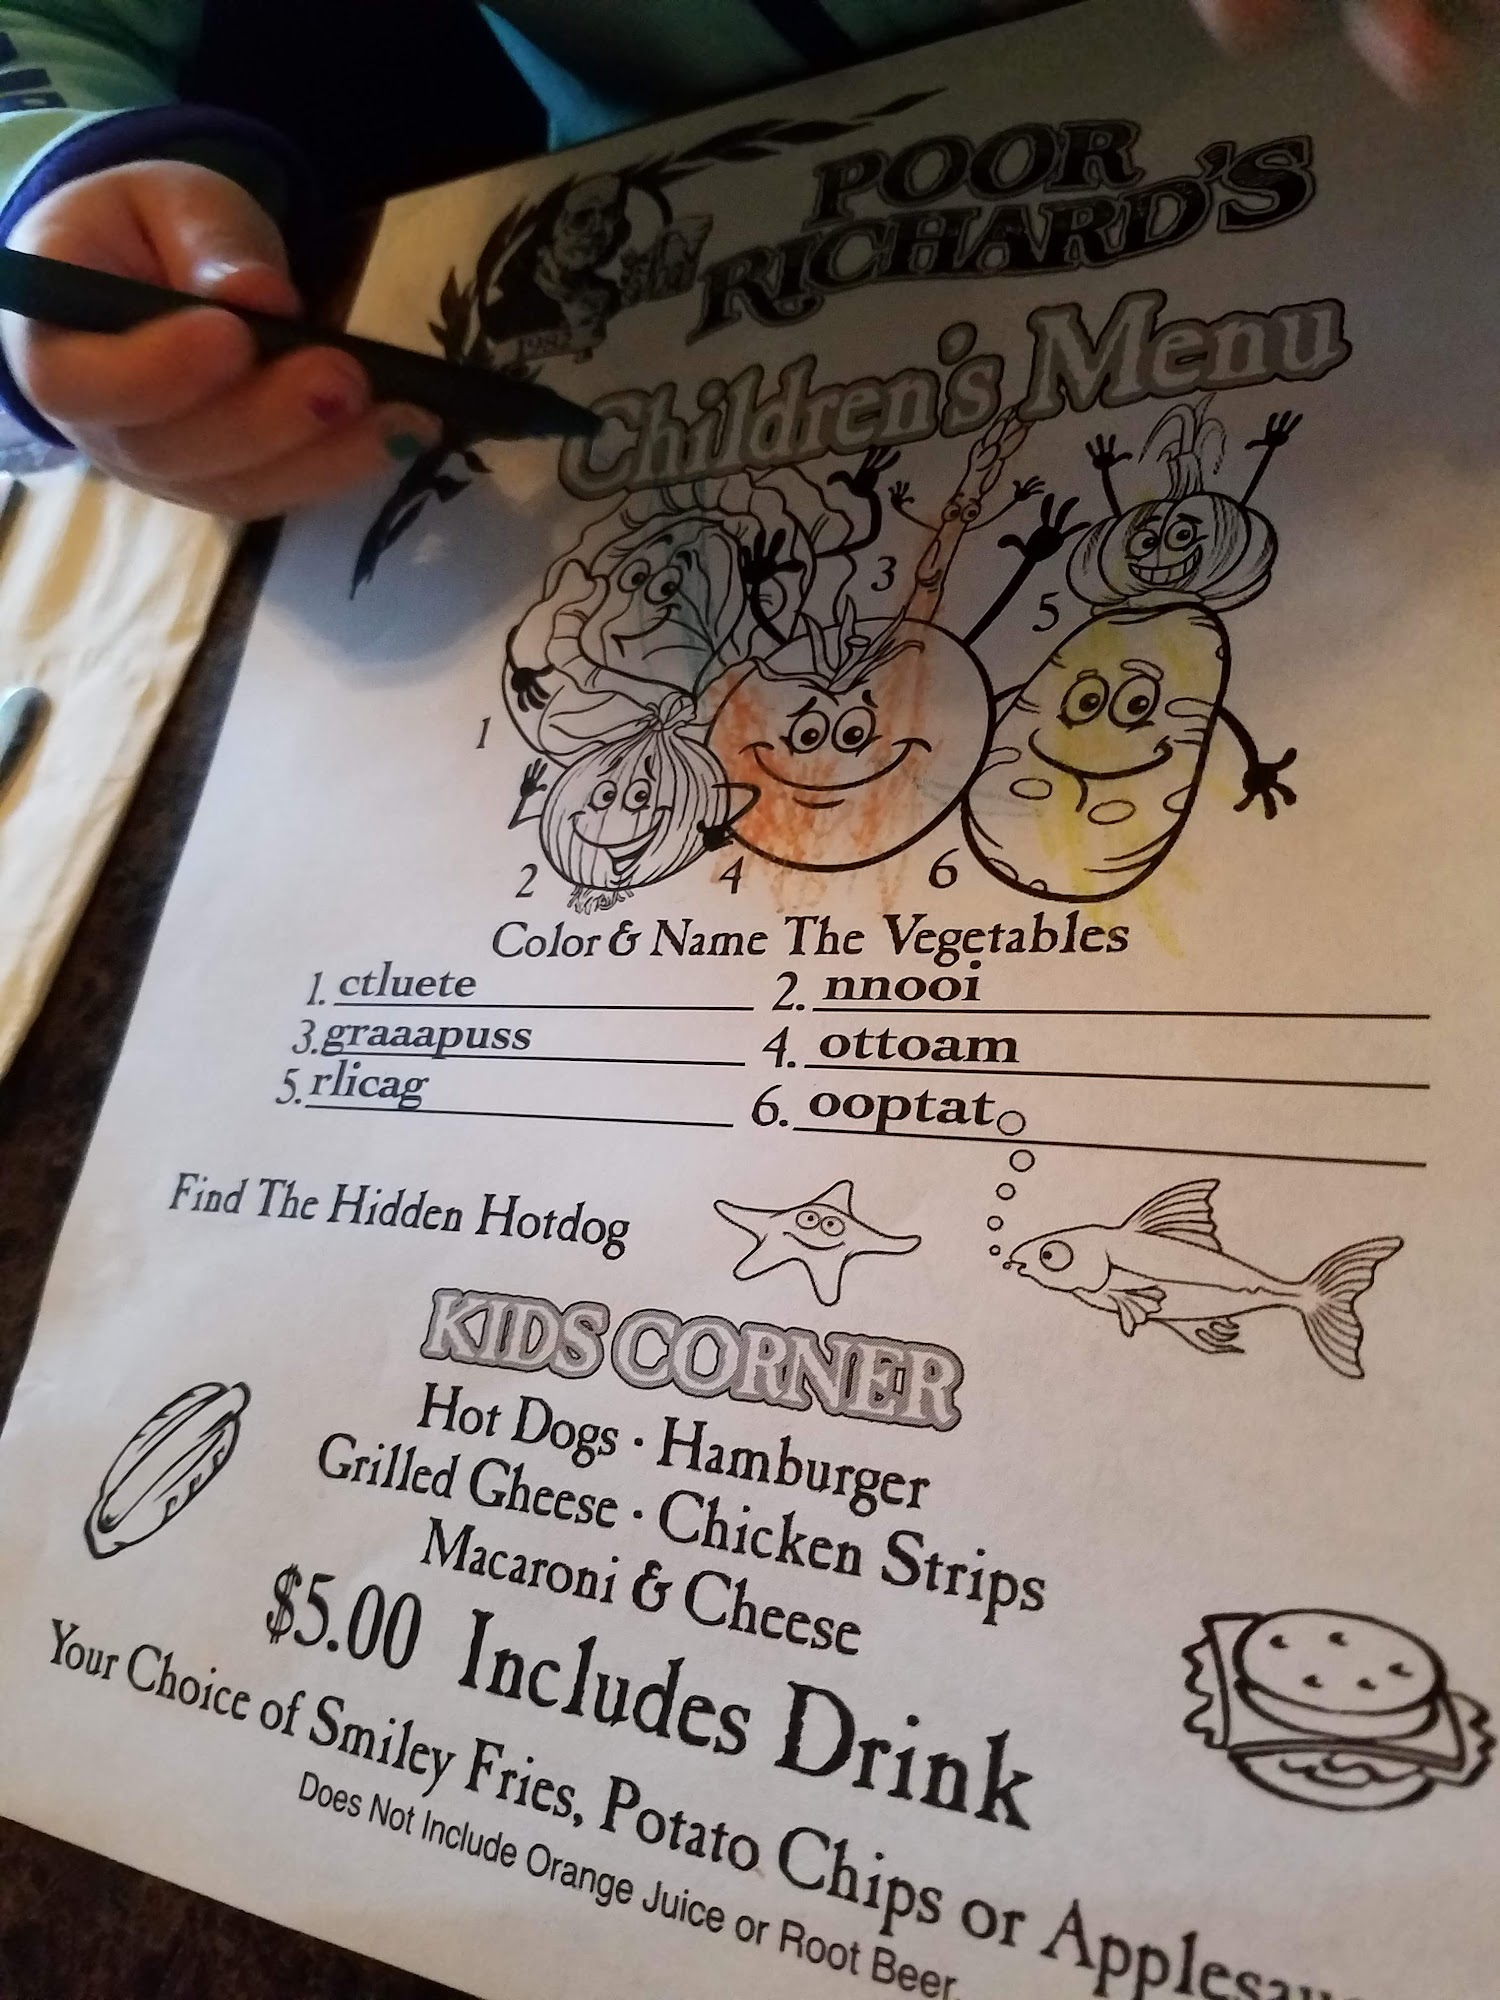 POOR
RICHARD'S
1982
Children's Menu
3
5
1
2
4
6
Color & Name The Vegetables
1. ctluete 2. nnooi
3. graaapuss 4. ottoam
5. rlicag 6. ooptat
Find The Hidden Hotdog
KIDS CORNER
Hot Dogs · Hamburger
Grilled Gheese · Chicken Strips
Macaroni & Cheese
$5.00 Includes Drink
Your Choice of Smiley Fries, Potato Chips or
Does Not Include Orange Juice or Root Beer.